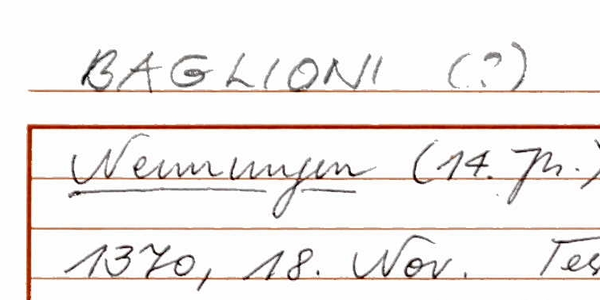 BAGLIONI (?)
Nennungen (14. Jh.)
1370, 18. Nov. Tes